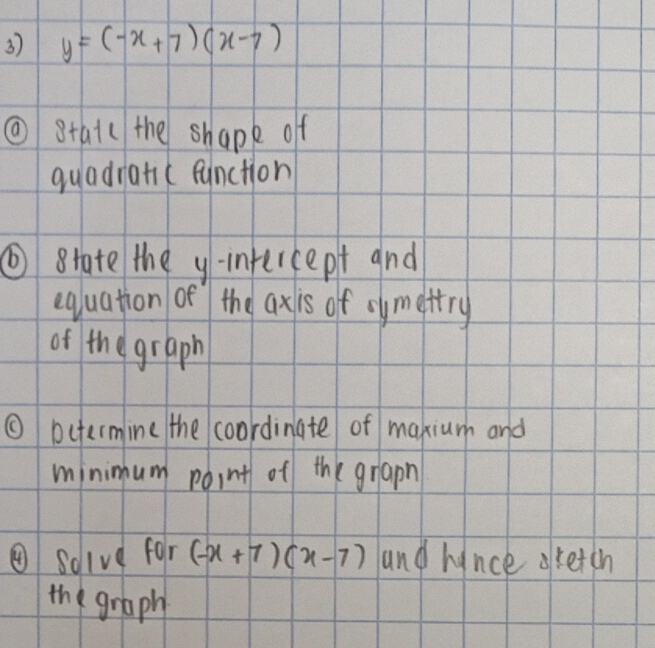 3) y = (-x+7)(x-7)
ⓐ State the shape of
quadratic function
ⓑ State the y-intercept and
equation of the axis of symettry
of the graph
ⓒ Determine the coordinate of maxium and
minimum point of the graph
④ Solve for (-x+7)(x-7) and hence sketch
the graph